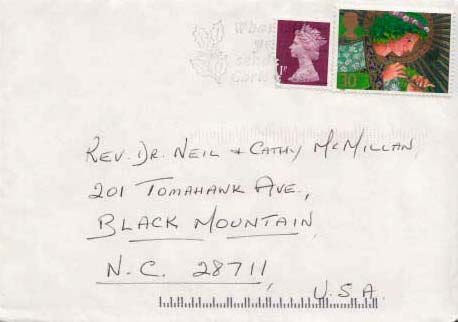 1P
30
REV. DR. NEIL & CATHY MCMILLAN,
201 TOMAHAWK AVE.,
BLACK MOUNTAIN,
N.C. 28711,
U.S.A.